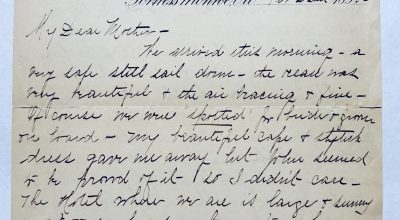 My Dear Mother —
We arrived this morning — a
very safe still sail down — the ocean was
very beautiful & the air bracing & fine —
Of course we were spotted for bride & groom
on board — My beautiful cape & stylish
dress gave me away but John seemed
to be proud of it — so I didn't care —
The Hotel where we are is large & sunny